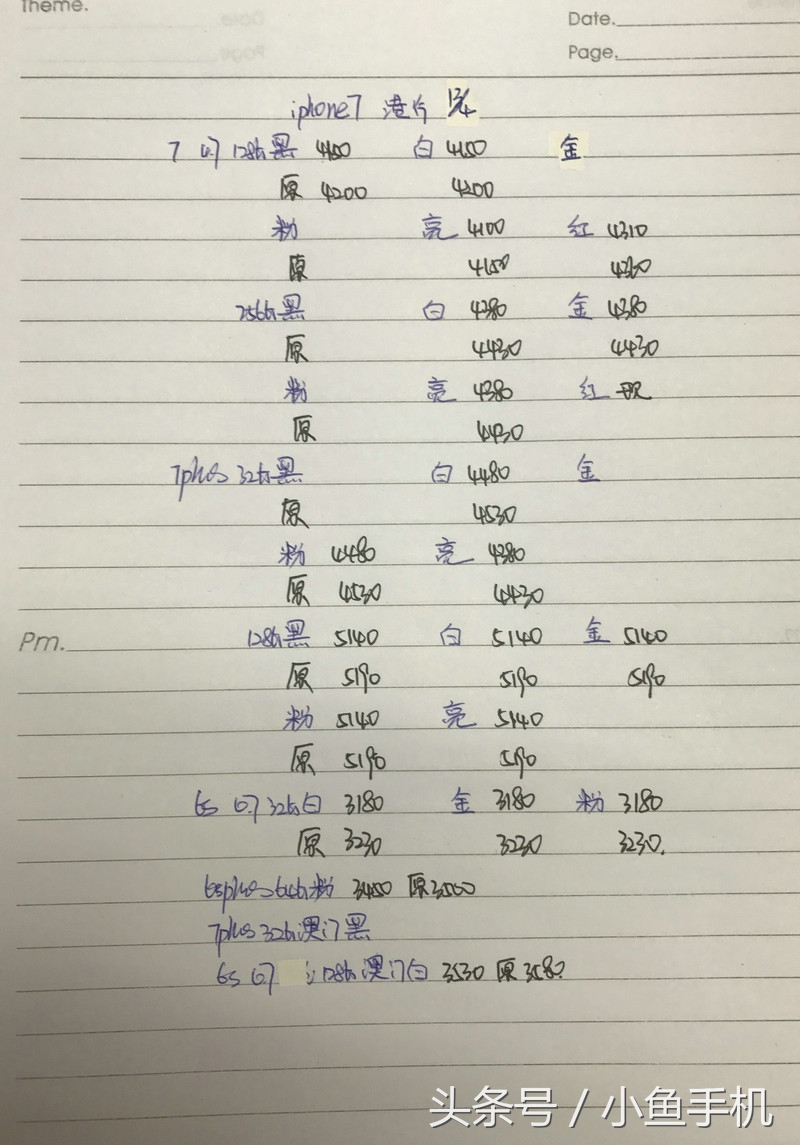 Theme.
Date.
Page.
iphone7 港行 13/4
7 4.7 128G黑 4150 白 4150 金
原 4200 4200
粉 亮 4100 红 4310
原 4150 4360
256G黑 白 4380 金 4380
原 4430 4430
粉 亮 4380 红
原 4430
7plus 32G黑 白 4480 金
原 4530
粉 4480 亮 4380
原 4530 4430
Pm. 128G黑 5140 白 5140 金 5140
原 5190 5190 5190
粉 5140 亮 5140
原 5190 5190
6s 4.7 32G白 3180 金 3180 粉 3180
原 3230 3230 3230.
6splus 64G粉 3450 原3500
7plus 32G澳门黑
6s 4.7 128G澳门白 3530 原3580
头条号 / 小鱼手机